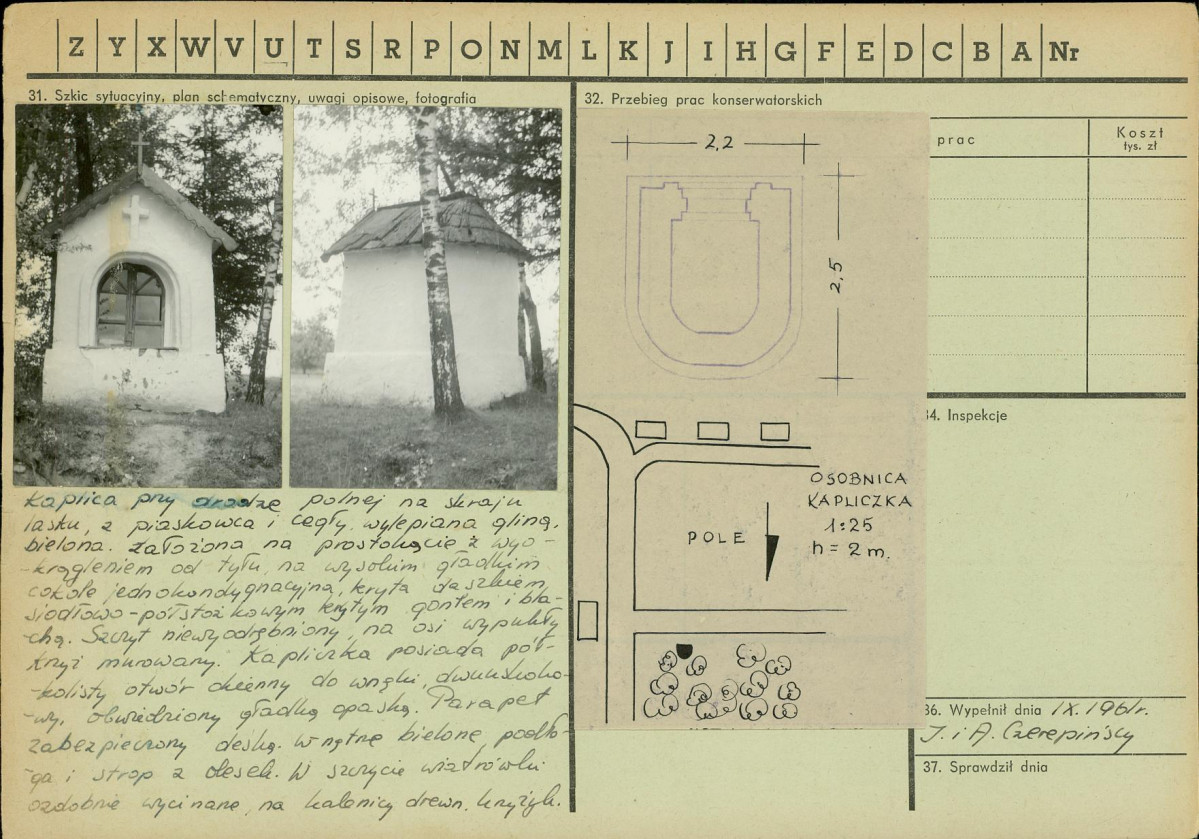 Z Y X W V U T S R P O N M L K J I H G F E D C B A Nr
31. Szkic sytuacyjny, plan schematyczny, uwagi opisowe, fotografia
Kaplica przy drodze polnej na skraju
lasku, z piaskowca i cegły, wylepiana gliną,
bielona. Założona na prostokącie z wyo-
-krągleniem od tyłu, na wysokim gładkim
cokole jednokondygnacyjna, kryta daszkiem
siodłowo-półstożkowym krytym gontem i bla-
-chą. Szczyt niewyodrębniony, na osi wypukły
krzyż murowany. Kapliczka posiada pół-
-kolisty otwór okienny do wnęki, dwuuskoko-
-wy, obwiedziony gładką opaską. Parapet
zabezpieczony deską. Wnętrze bielone, podło-
-ga i strop z desek. W szczycie wiatrówki
ozdobnie wycinane, na kalenicy drewn. krzyżyk.
32. Przebieg prac konserwatorskich
prac
Koszt
tys. zł
2,2
2,5
OSOBNICA
KAPLICZKA
1:25
h = 2 m.
POLE
34. Inspekcje
36. Wypełnił dnia IX.1961r.
J. i A. Czerepińscy
37. Sprawdził dnia